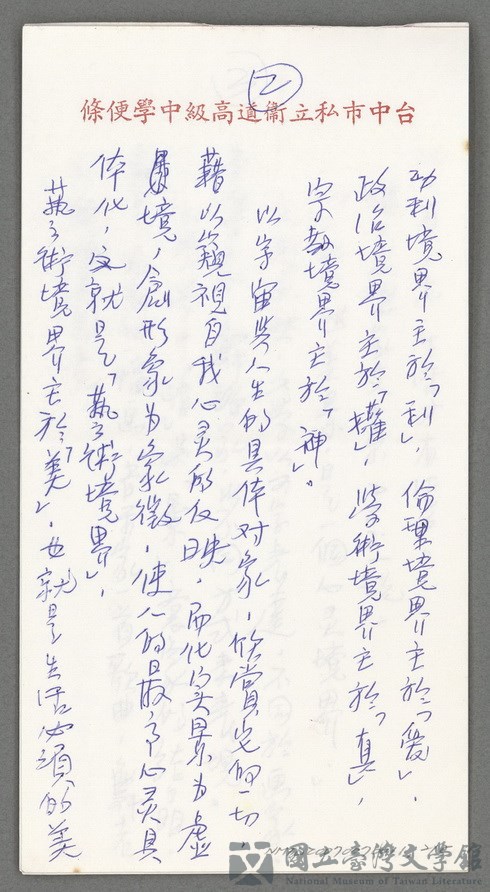 ②
台中市私立衛道高級中學便條
功利境界主於「利」，倫理境界主於「愛」，
政治境界主於「權」，學術境界主於「真」，
宗教境界主於「神」。
以宇宙與人生的具体对象，欣賞它的一切，
藉以窺視自我心灵的反映，而化实景为虚
境，創形象为象徵，使人的最高心灵具
体化，这就是「藝術境界」，
藝術境界主於「美」，也就是生活必須的美
國立臺灣文學館
National Museum of Taiwan Literature